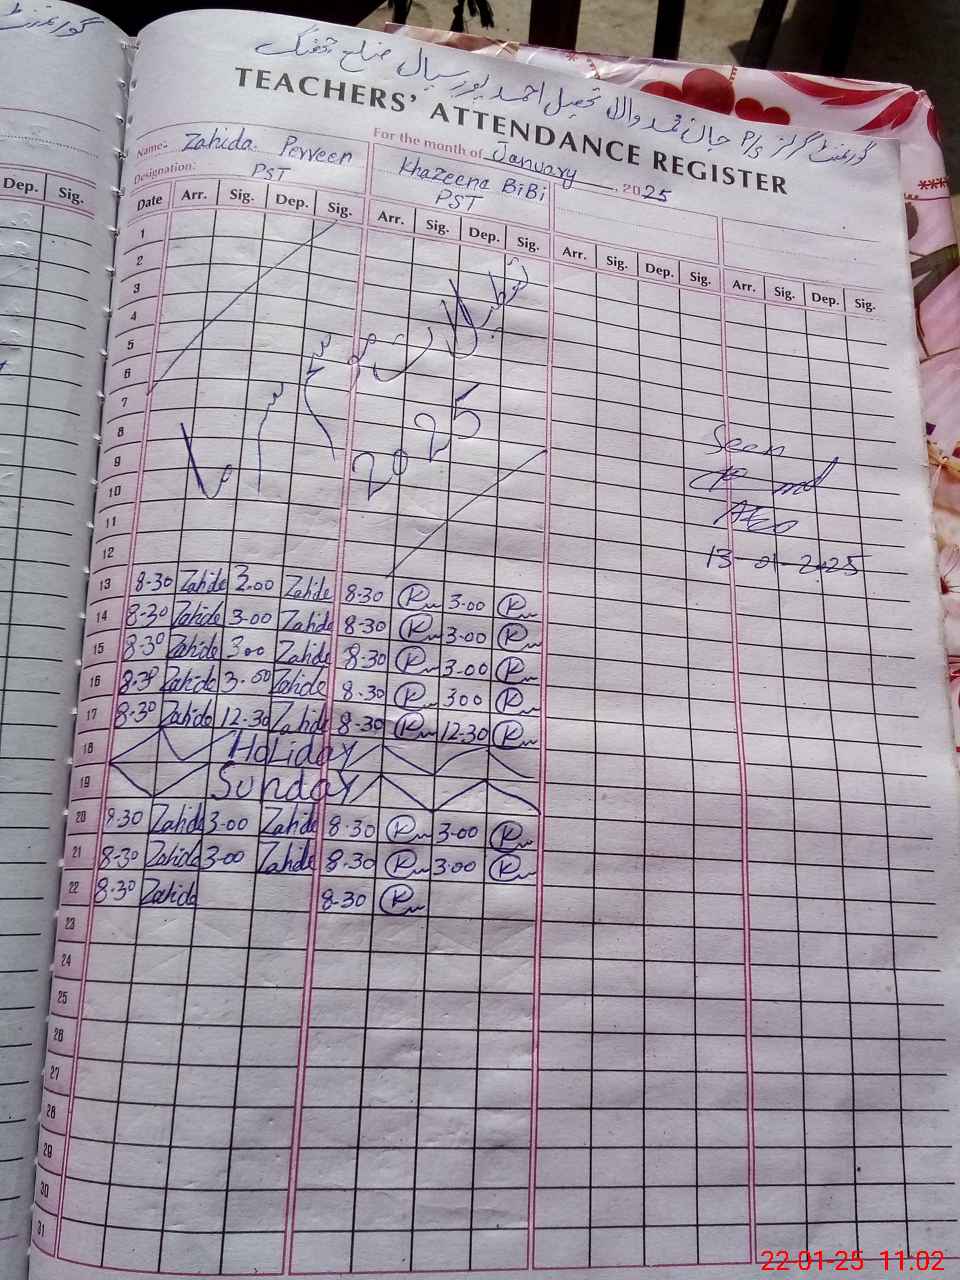 گورنمنٹ گرلز P/S جان محمد والا تحصیل احمد پور سیال ضلع جھنگ
TEACHERS' ATTENDANCE REGISTER
For the month of January, 2025
Name:- Zahida Perveen Khazeena BiBi
Designation: PST PST
Dep. Sig.
Date Arr. Sig. Dep. Sig. Arr. Sig. Dep. Sig. Arr. Sig. Dep. Sig. Arr. Sig. Dep. Sig.
1
2
3
4
5
6
7
8
9
10
11
12
تعطیلات موسم سرما
2025
Seen
AEO
13-01-2025
13 8-30 Zahida 3.00 Zahida 8-30 3-00
14 8-30 Zahida 3-00 Zahida 8-30 3-00
15 8-30 Zahida 3.00 Zahida 8-30 3-00
16 8-30 Zahida 3.00 Zahida 8-30 300
17 8-30 Zahida 12-30 Zahida 8-30 12-30
18 Holiday
19 Sunday
20 8-30 Zahida 3-00 Zahida 8-30 3-00
21 8-30 Zahida 3-00 Zahida 8-30 3-00
22 8-30 Zahida 8-30
23
24
25
26
27
28
29
30
31
22-01-25 11:02